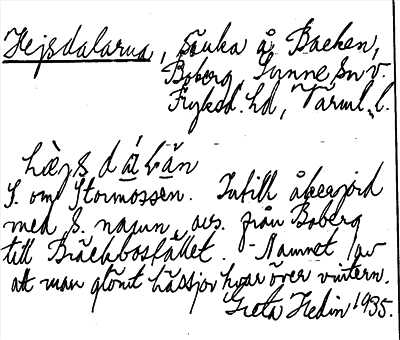 Hejsdalarna, sänka å Backen,
Boberg, Sunne sn v.
Fryksd. hd, Värml. l.
hæ̀jsdáɫa̱n
S. om Stormossen. Intill åkerjord
med s. namn, avs. från Boberg
till Bräckbosfallet. Namnet av
att man glömt hässjor kvar över vintern.
Greta Hedin 1935.